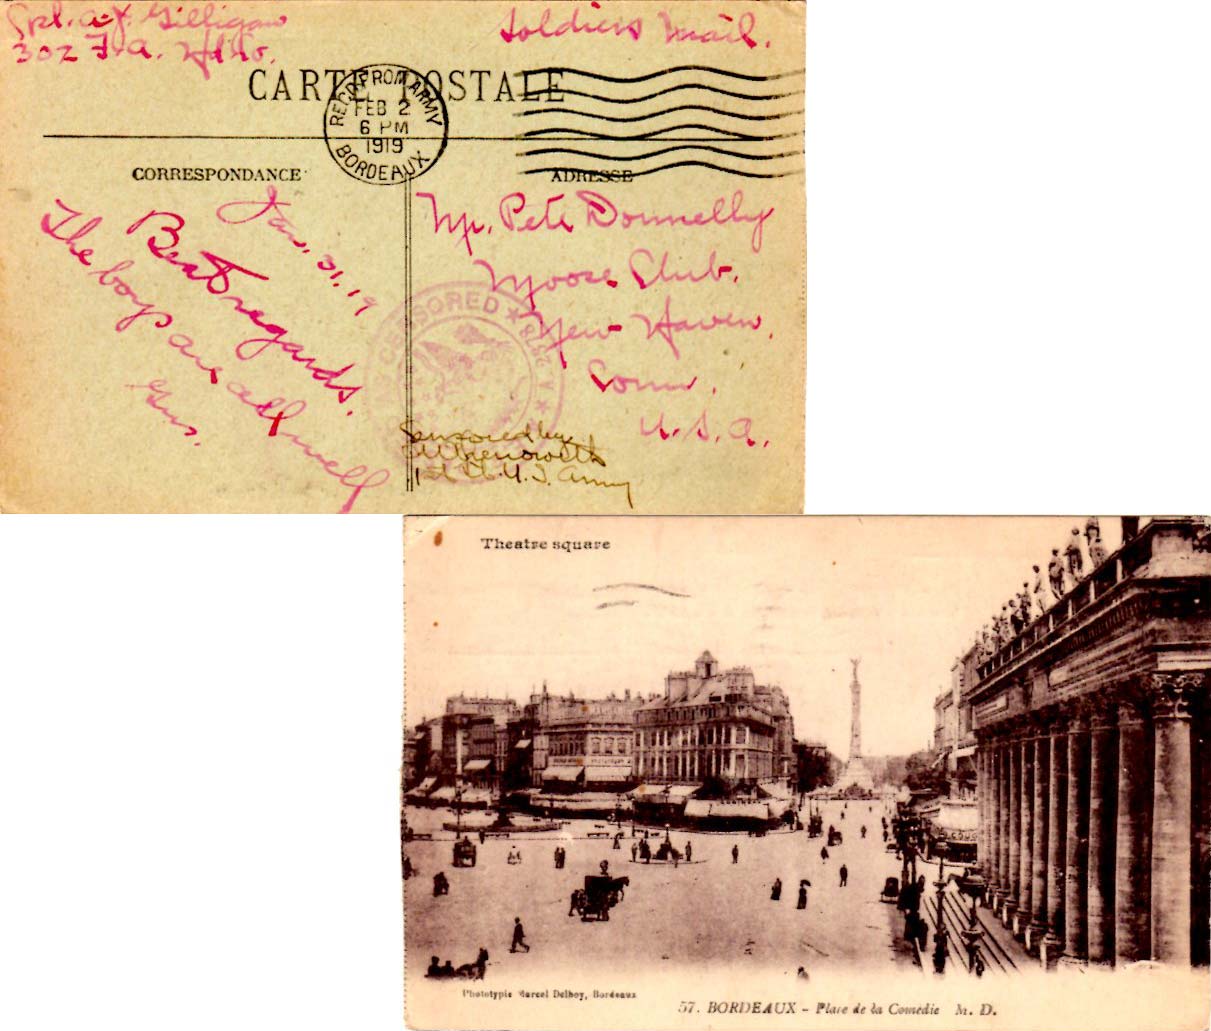 Cpl. A. J. Gilligan
302 F.A. Hd Co.
Soldiers Mail.
CARTE POSTALE
REC'D FROM ARMY
FEB 2
6 PM
1919
BORDEAUX
CORRESPONDANCE
ADRESSE
Jan. 31, 19
Best regards.
The boys are all well
Gus.
Mr. Pete Donnelly
Moose Club.
New Haven.
Conn.
U.S.A.
CENSORED
Censored by
1st Lt. U.S. Army
Theatre square
Phototypie Marcel Delboy, Bordeaux
57. BORDEAUX - Place de la Comédie M. D.